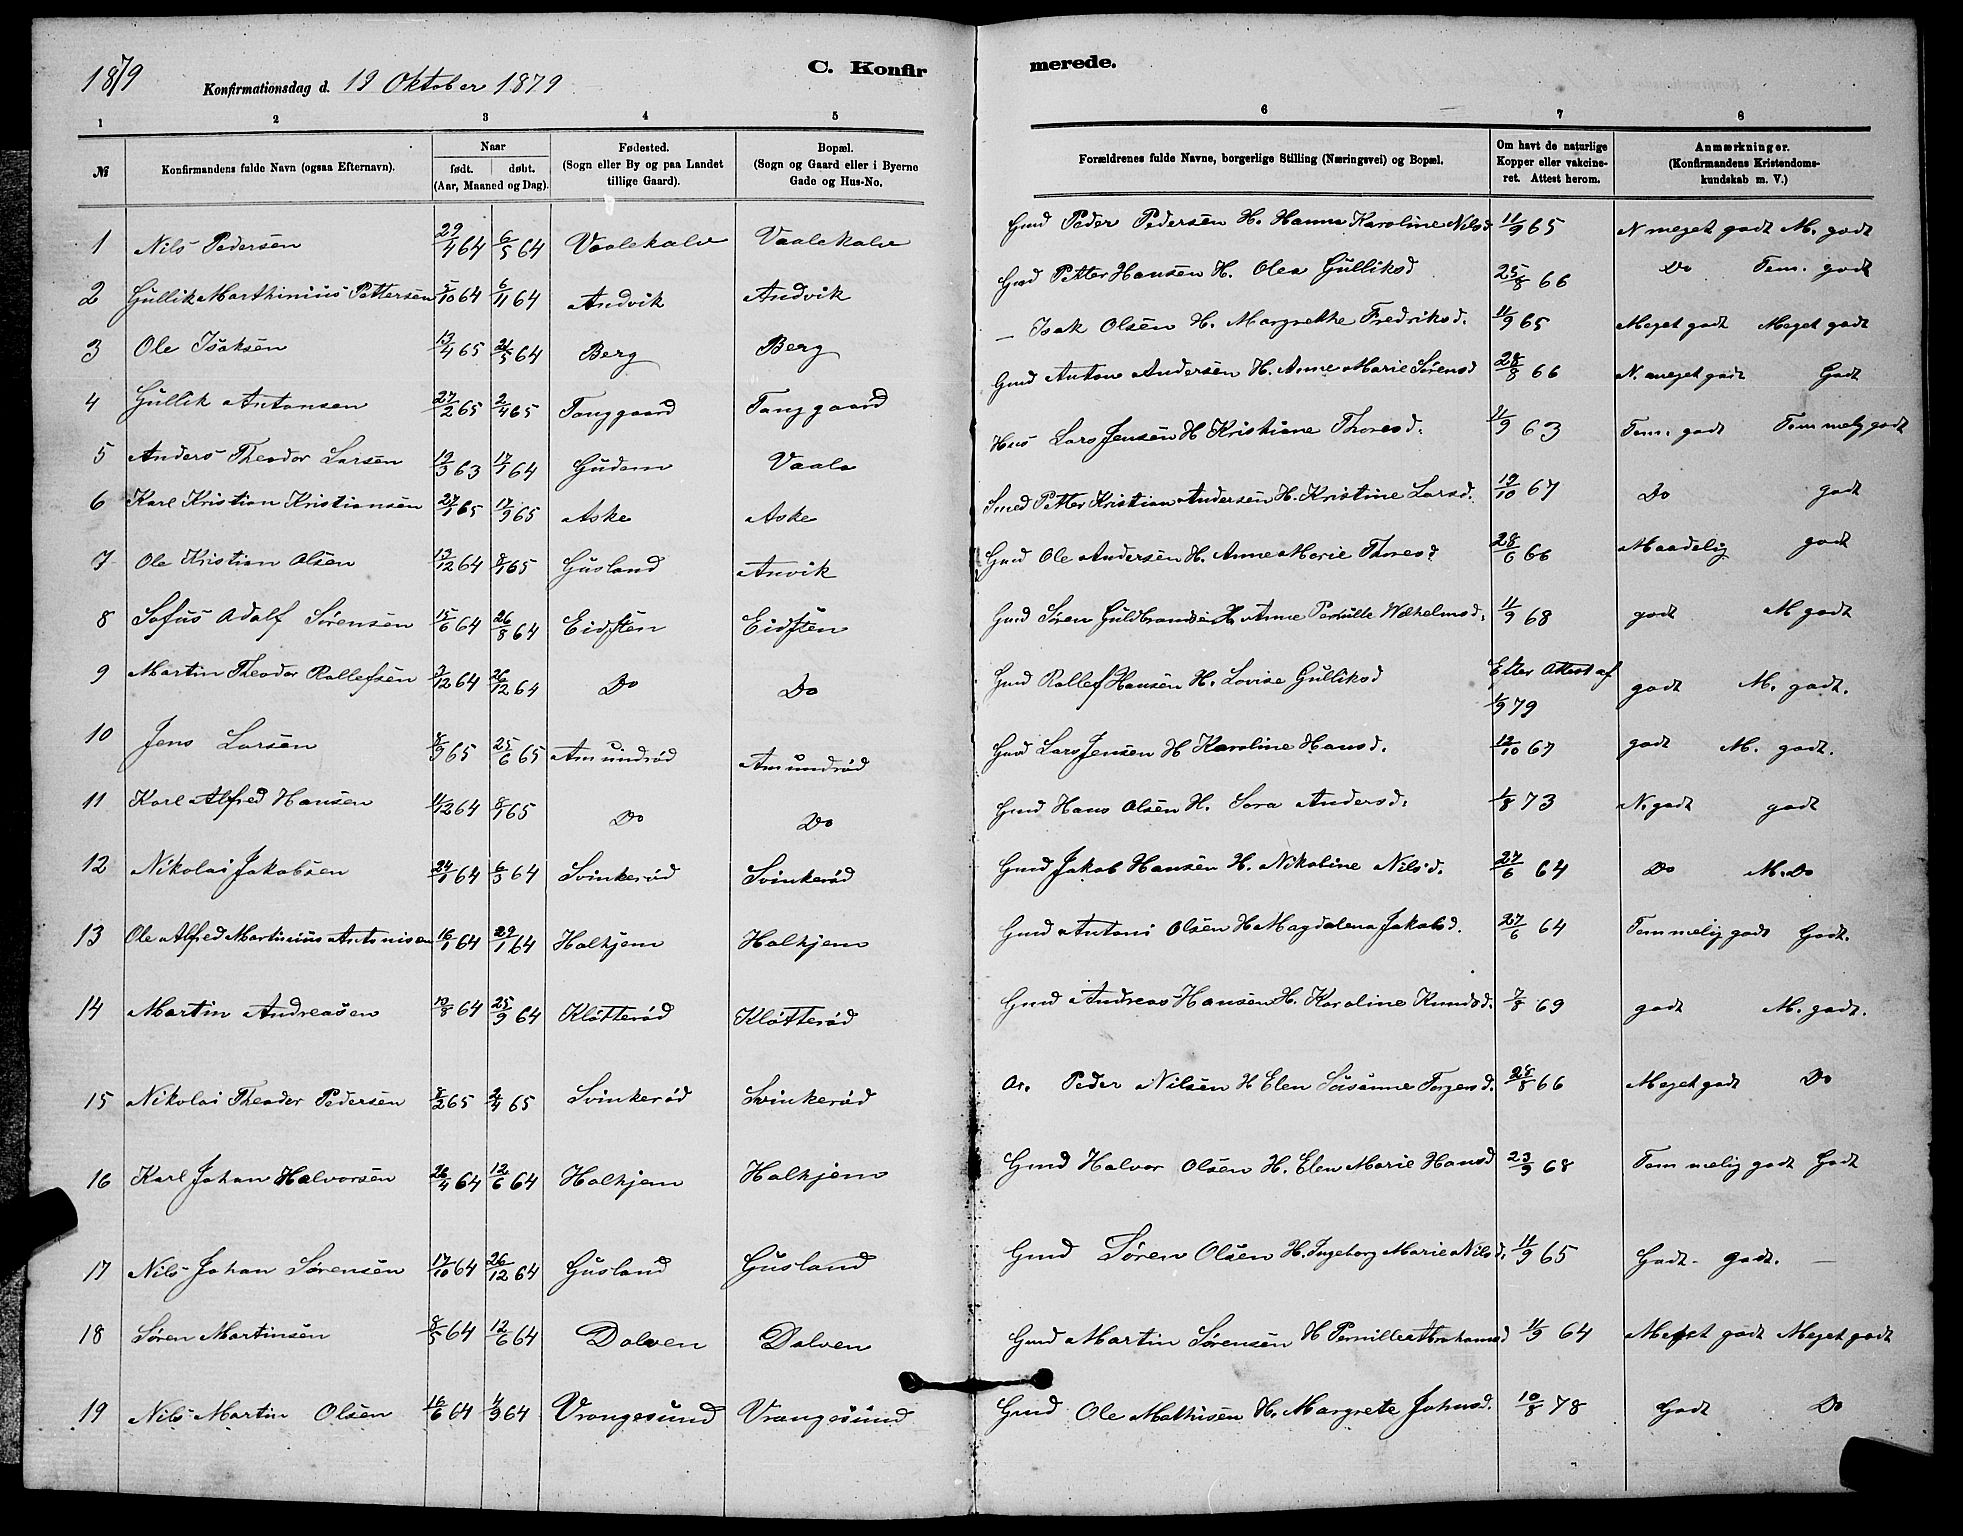 1879
Konfirmationsdag d. 19 Oktober 1879
C. Konfirmerede.
1 2 3 4 5 6 7 8
№
Konfirmandens fulde Navn (ogsaa Efternavn).
Naar
født. døbt.
(Aar, Maaned og Dag).
Fødested.
(Sogn eller By og paa Landet
tillige Gaard).
Bopæl.
(Sogn og Gaard eller i Byerne
Gade og Hus-No.
Forældrenes fulde Navne, borgerlige Stilling (Næringsvei) og Bopæl.
Om havt de naturlige
Kopper eller vakcine-
ret. Attest herom.
Anmærkninger.
(Konfirmandens Kristendoms-
kundskab m. V.)
1 Nils Pedersen 29/4 64 6/5 64 Vaalekalv Vaalekalv Gmd Peder Pedersen H. Hanna Karoline Nilsd 11/9 65 N meget godt M. godt
2 Gullik Marthinius Pettersen 5/10 64 6/11 64 Andvik Andvik Gmd Petter Hansen H. Olea Gulliksd 25/8 66 Do Tem. godt
3 Ole Isaksen 13/4 65 21/5 64 Berg Berg — Isak Olsen H. Margrethe Fredriksd. 11/9 65 Meget godt Meget godt
4 Gullik Antonsen 27/2 65 2/4 65 Tanggaard Tanggaard Gmd Anton Andersen H. Anne Marie Sørensd 28/8 66 N. meget godt Godt
5 Anders Theodor Larsen 19/9 63 17/1 64 Gudem Vaale Hus Lars Jensen H Kristiane Thoresd. 11/9 63 Tem. godt Temmelig godt
6 Karl Kristian Kristiansen 27/7 65 17/9 65 Aske Aske Smed Petter Kristian Andersen H. Kristine Larsd. 19/10 67 Do godt
7 Ole Kristian Olsen 19/12 64 8/1 65 Gusland Anvik Gmd Ole Andersen H. Anne Marie Thoresd 28/6 66 Maadelig godt
8 Sofus Adolf Sørensen 15/6 64 26/8 64 Eidsten Eidsten Gmd Søren Guldbrandsen H. Anne Pernille Wilhelmsd. 11/9 68 godt M godt
9 Martin Theodor Rollefsen 3/12 64 26/12 64 Do Do Gmd Rollef Hansen H. Lovise Gulliksd Efter Attest af 1/9 79 godt M. godt.
10 Jens Larsen 8/3 65 25/6 65 Amundrød Amundrød Gmd Lars Jensen H Karoline Hansd. 12/10 67 godt M. godt.
11 Karl Alfred Hansen 11/12 64 8/1 65 Do Do Gmd Hans Olsen H. Sara Andersd. 1/8 73 N. godt godt
12 Nikolai Jakobsen 24/1 64 6/3 64 Svinkerød Svinkerød Gmd Jakob Hansen H. Nikoline Nilsd. 27/6 64 Do M. Do
13 Ole Alfred Martinius Antonisen 16/1 64 29/1 64 Halhjem Halhjem Gmd Antoni Olsen H Magdalena Jakobsd. 27/6 64 Temmelig godt Godt.
14 Martin Andreasen 19/8 64 25/9 64 Kløtterød Kløtterød Gmd Andreas Hansen H. Karoline Knudsd. 7/8 69 godt M. godt.
15 Nikolai Theodor Pedersen 8/2 65 2/4 65 Svinkerød Svinkerød Peder Nilsen H Elen Susanne Torgersd. 28/8 66 Meget godt Do
16 Karl Johan Halvorsen 26/4 64 12/6 64 Halhjem Halhjem Gmd Halvor Olsen H. Elen Marie Hansd 23/9 68 Temmelig godt Godt
17 Nils Johan Sørensen 17/10 64 26/12 64 Gusland Gusland Gmd Søren Olsen H. Ingeborg Marie Nilsd. 11/9 65 Godt - godt. —
18 Søren Martinsen 8/5 64 12/6 64 Dalven Dalven Gmd Martin Sørensen H Pernille Abrahamsd 11/9 64 Meget godt Meget godt
19 Nils Martin Olsen 16/6 64 4/9 64 Vrangesund Vrangesund Gmd Ole Mathisen H. Margrete Johnsd. 10/8 78 Godt Do